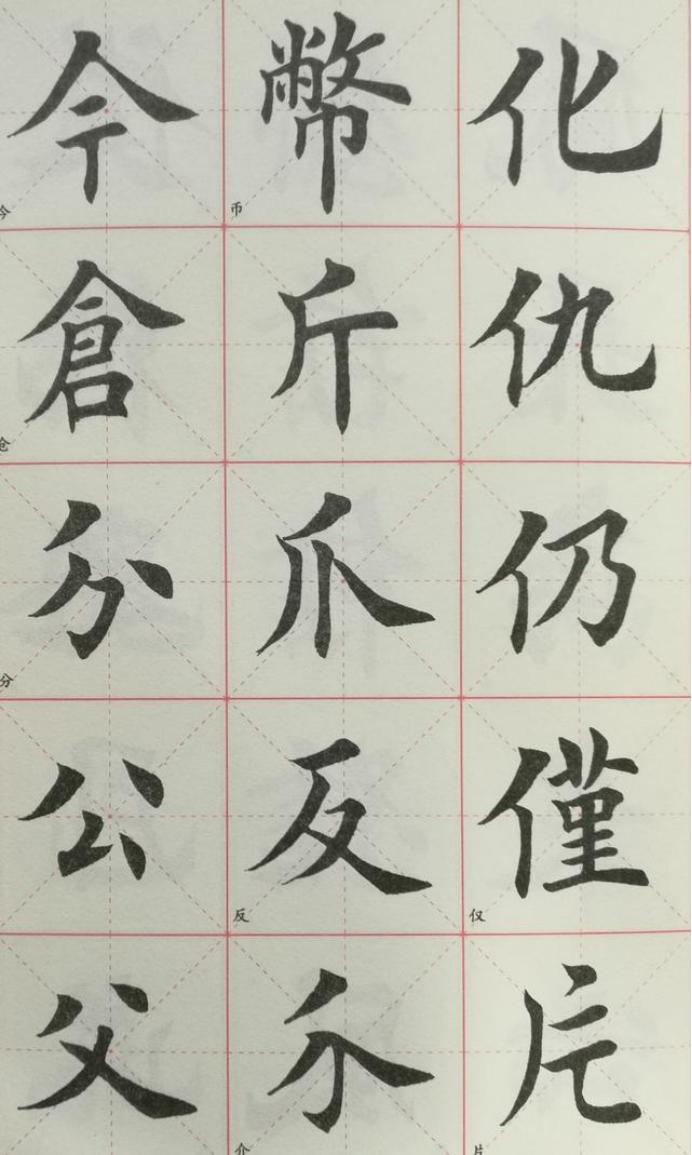 化
仇
仍
僅
仅
片
片
幣
币
斤
爪
反
反
介
介
今
今
倉
仓
分
分
公
父